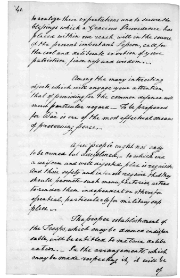 to realize their expectations and to secure the
blessings which a Gracious Providence has
placed within our reach, will in the course
of the present important Session, call for
the cool and deliberate exertion of your
patriotism, firmness and wisdom.
Among the many interesting
objects which will engage your attention,
that of providing for the common defence will
merit particular regard. To be prepared
for War is one of the most effectual means
of preserving peace.
A free people ought not only
to be armed but disciplined; to which end
a uniform and well digested plan is requisite:
And their safety and interest require that they
should promote such manufactories, as tend
to render them independent on others, for
essential, particularly for military sup-
plies.
The proper establishment of
the Troops, which may be deemed indispen-
sable, will be entitled to mature consider-
ation. In the arrangements which
may be made respecting it, it will be
of